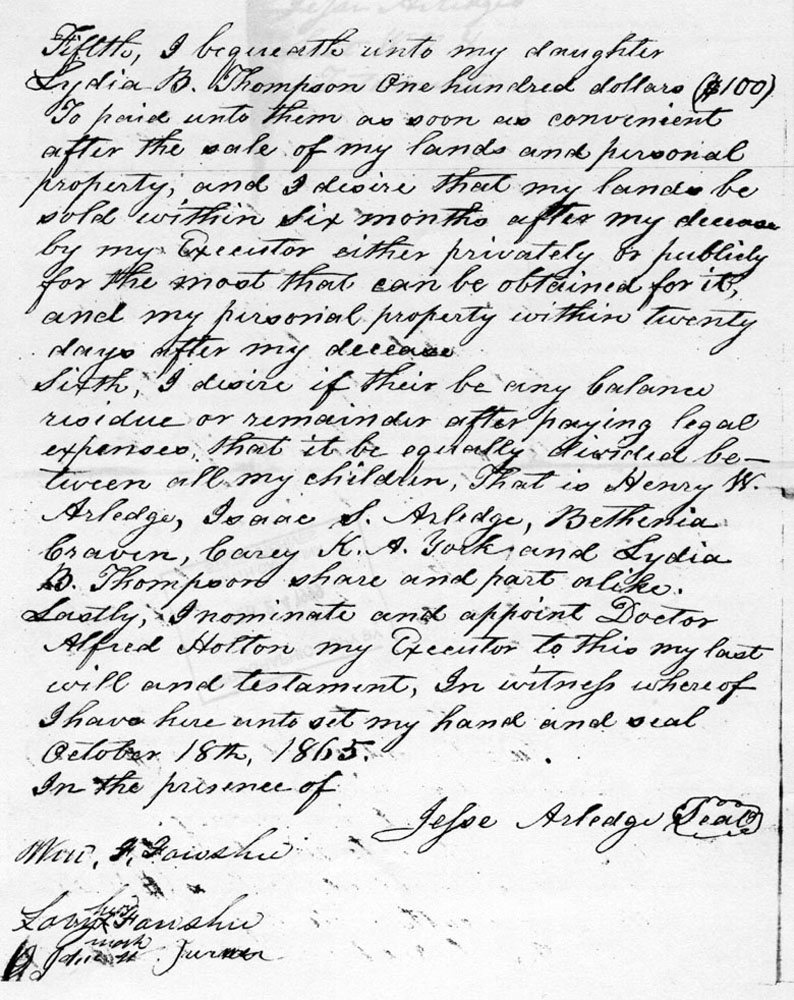 Fifth, I bequeath unto my daughter
Lydia B. Thompson One hundred dollars ($100)
To paid unto them as soon as convenient
after the sale of my lands and personal
property, and I desire that my lands be
sold within six months after my decease
by my Executor either privately or publicly
for the most that can be obtained for it,
and my personal property within twenty
days after my decease
Sixth, I desire if their be any balance
residue or remainder after paying legal
expenses, that it be equally divided be-
tween all my children, That is Henry W.
Arledge, Isaac S. Arledge, Bethenia
Craven, Carey K. A. York and Lydia
B. Thompson share and part alike.
Lastly, I nominate and appoint Doctor
Alfred Holton my Executor to this my last
will and testament, In witness where of
I have here unto set my hand and seal
October 18th, 1865.
In the presence of
Jesse Arledge Seal
Wm. F. Fowshee
her
Fowshee
mark
Turner